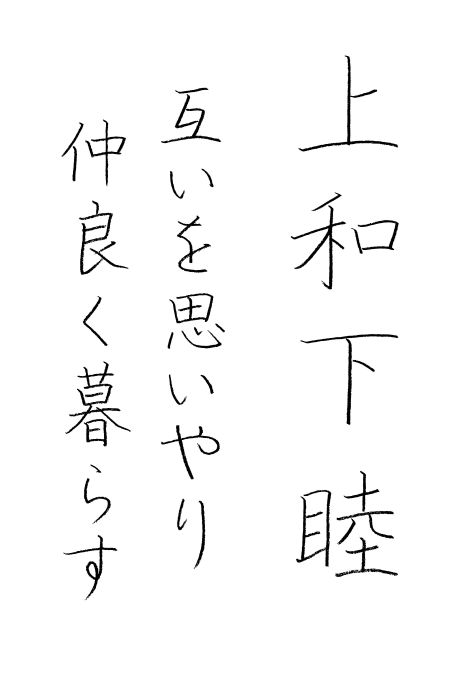 上和下睦
互いを思いやり
仲良く暮らす